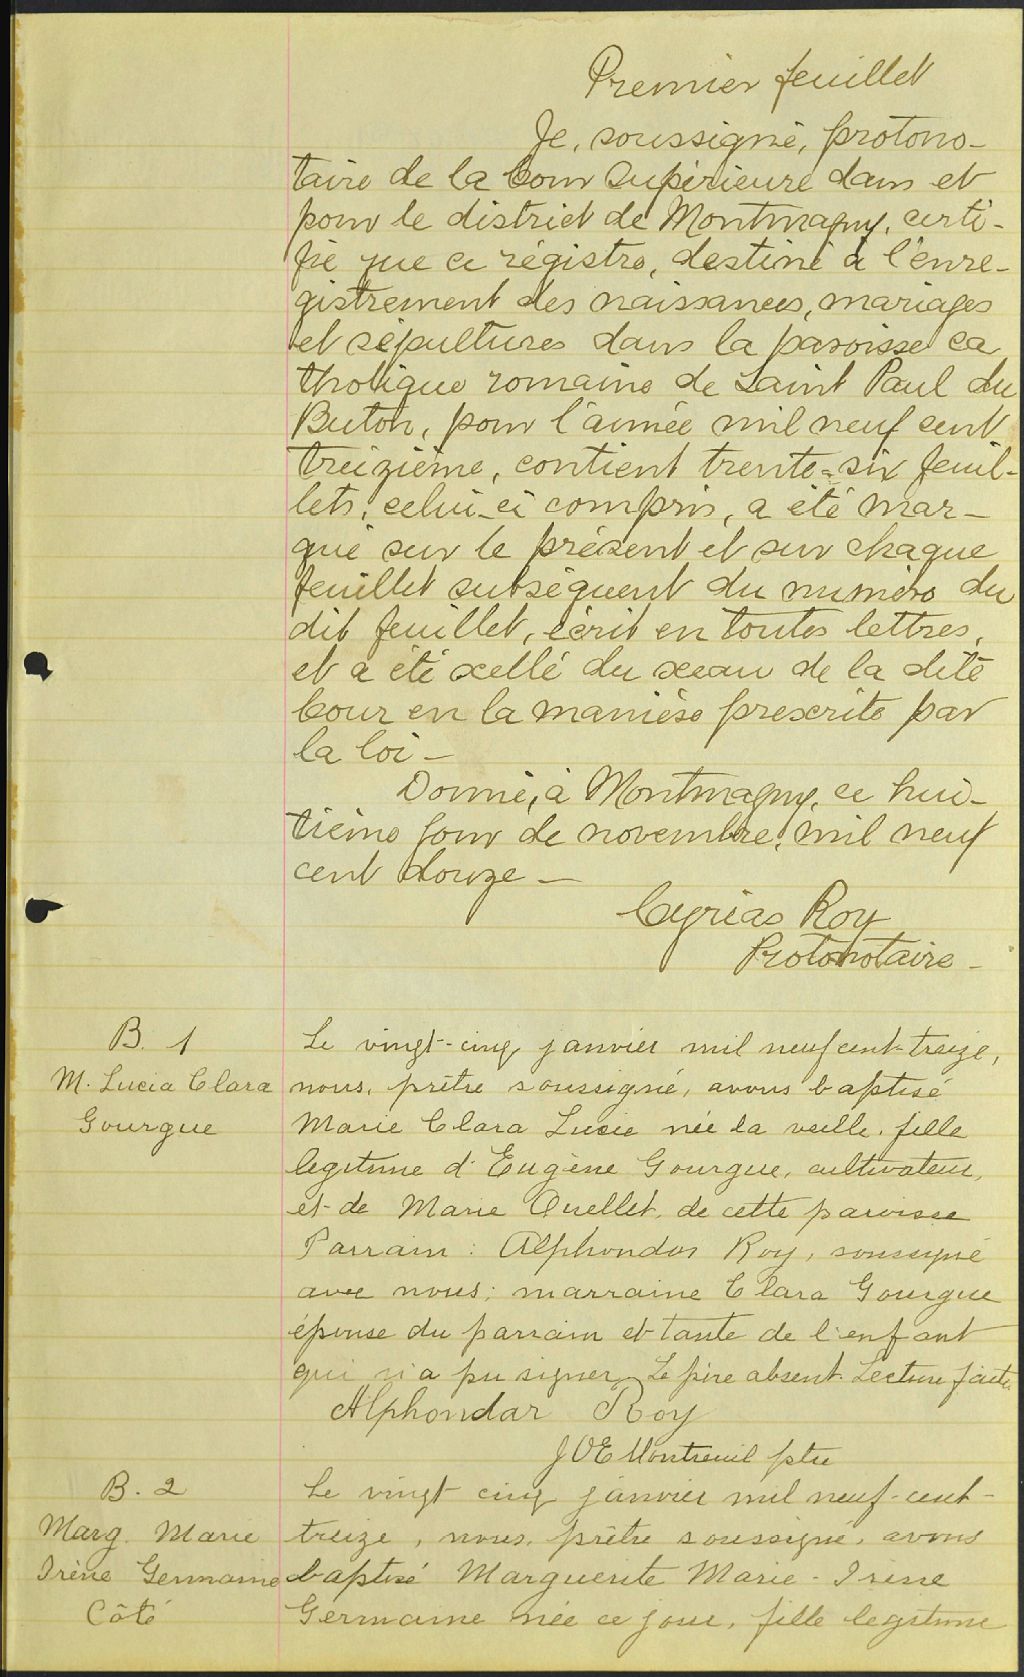 Premier feuillet
Je, soussigné, protono-
taire de la Cour Supérieure dans et
pour le district de Montmagny, certi-
fie que ce régistre, destiné à l'enre-
gistrement des naissances, mariages
et sépultures dans la paroisse ca
tholique romaine de Saint Paul du
Buton, pour l'année mil neuf cent
treizième, contient trente-six feuil-
lets, celui-ci compris, a été mar-
qué sur le présent et sur chaque
feuillet subséquent du numéro du
dit feuillet, écrit en toutes lettres,
et a été scellé du sceau de la dite
Cour en la manière prescrite par
la loi -
Donné, à Montmagny, ce hui-
tième jour de novembre, mil neuf
cent douze -
Cyrias Roy
Protonotaire -
B. 1
M. Lucia Clara
Gourgue
Le vingt-cinq janvier mil neuf cent-treize,
nous, prêtre soussigné, avons baptisé
Marie Clara Lucie née la veille, fille
legitime d'Eugène Gourgue, cultivateur,
et de Marie Ouellet, de cette paroisse
Parrain : Alphondor Roy, soussigné
avec nous; marraine Clara Gourgue
épouse du parrain et tante de l'enfant
qui n'a pu signer. Le père absent. Lecture faite
Alphondar Roy
JOE Montreuil ptre
B. 2
Marg. Marie
Irène Germaine
Côté
Le vingt cinq janvier mil neuf-cent-
treize, nous, prêtre soussigné, avons
baptisé Marguerite Marie-Irène
Germaine née ce jour, fille legitime